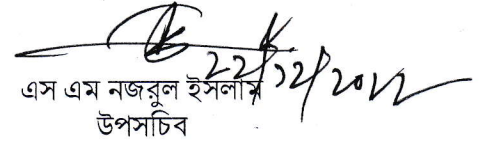 22/12/2022
এস এম নজরুল ইসলাম
উপসচিব